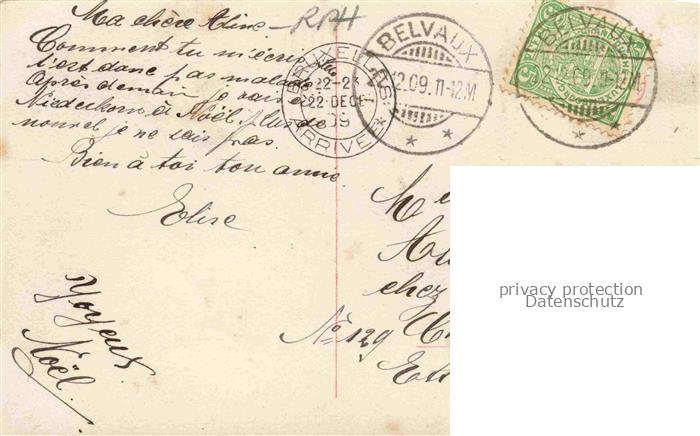 Ma chère Aline
RPH
Comment tu m'écris
t'est donc pas malade
Après demain je vais
Niederkorn à Noël, plus de
nouvel je ne sais pas.
Bien à toi ton amie
Elise
Joyeux
Noël.
BRUXELLES
22-23
22 DECE
09
ARRIVÉE
BELVAUX
12.09.11-12M
BELVAUX
12.09.11-12M
5
5
chez
No 129
privacy protection
Datenschutz